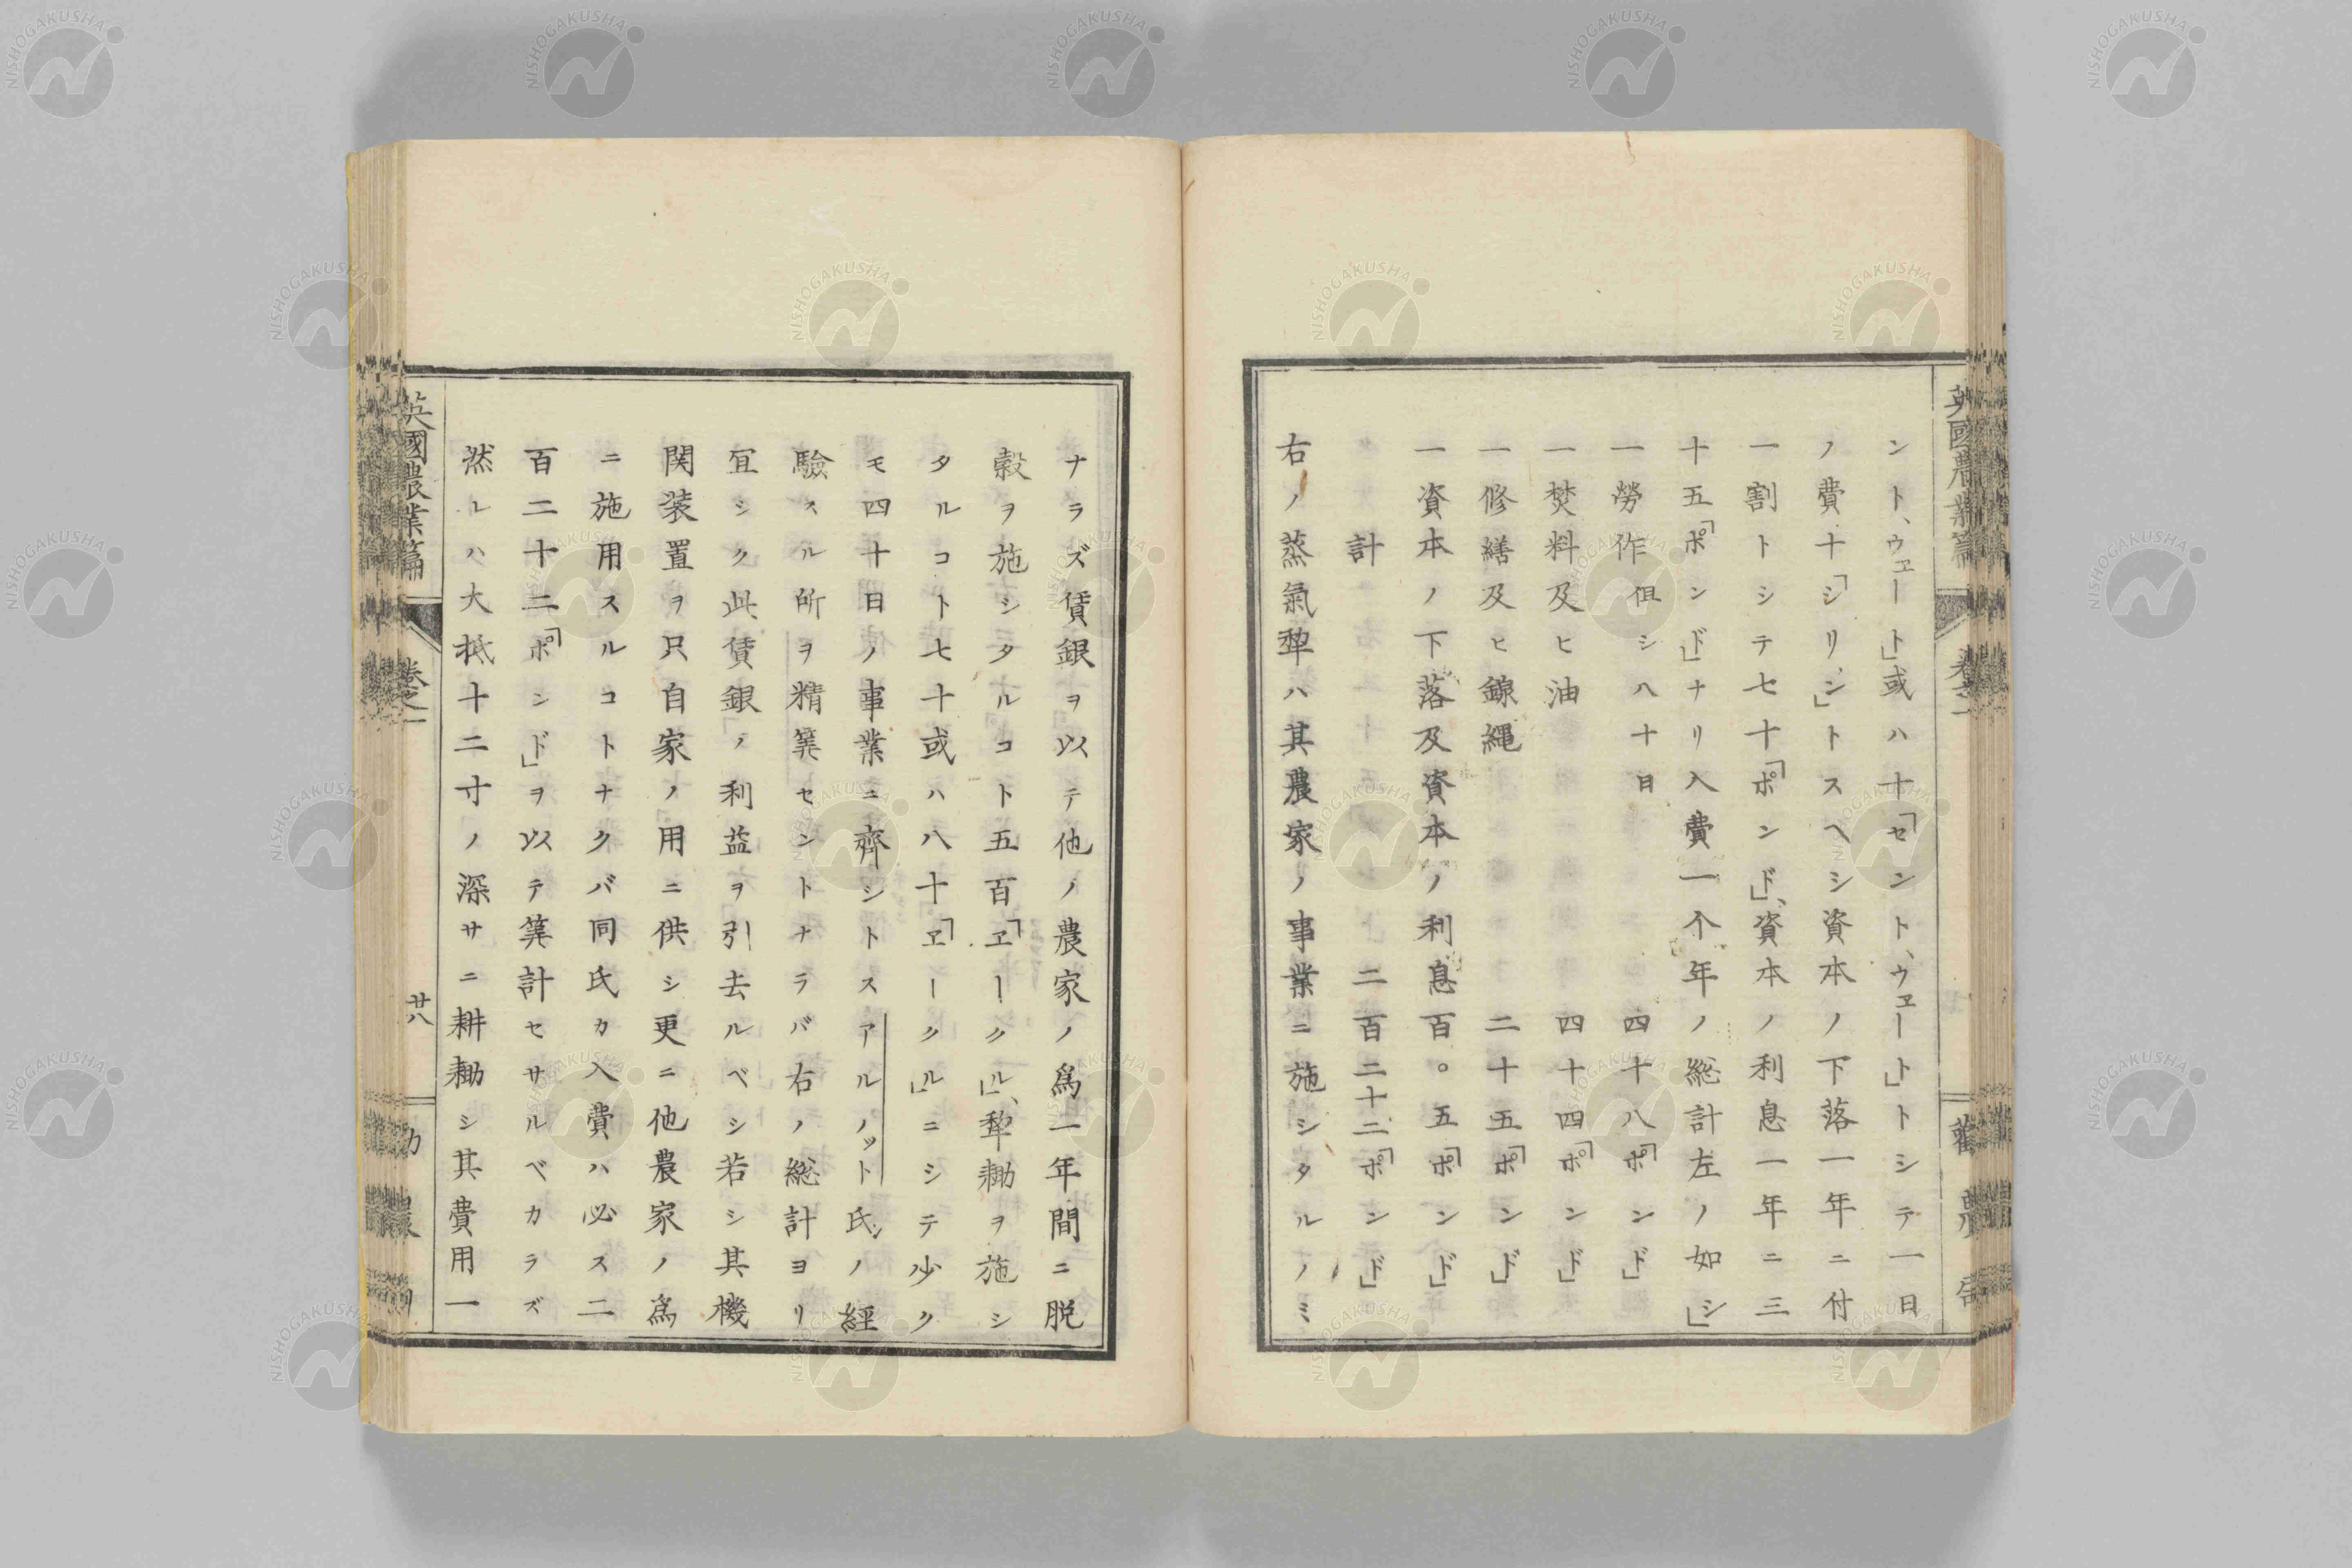 ント、ウエート」或ハ十「セント、ウエート」トシテ一日
ノ費十「シリン」トスヘシ資本ノ下落一年ニ付
一割トシテ七十「ポンド」、資本ノ利息一年ニ三
十五「ポンド」ナリ入費一个年ノ総計左ノ如シ」
一勞作 但シ八十日 四十八「ポンド」
一焚料及ヒ油 四十四「ポンド」
一修繕及ヒ線縄 二十五「ポンド」
一資本ノ下落及資本ノ利息百〇五「ポンド」
計 二百二十二「ポンド」
右ノ蒸氣犂ハ其農家ノ事業ニ施シタルノミ
ナラズ賃銀ヲ以テ他ノ農家ノ爲一年間ニ脱
穀ヲ施シタルコト五百「ヱークル」、犂耡ヲ施シ
タルコト七十或ハ八十「ヱークル」ニシテ少ク
モ四十日ノ事業ニ齊シトスアルノット氏ノ經
驗スル所ヲ精筭セントナラバ右ノ総計ヨリ
宜シク此賃銀ノ利益ヲ引去ルベシ若シ其機
関装置ヲ只自家ノ用ニ供シ更ニ他農家ノ爲
ニ施用スルコトナクバ同氏カ入費ハ必ス二
百二十二「ポンド」ヲ以テ筭計セサルベカラズ
然レハ大抵十二寸ノ深サニ耕耡シ其費用一
英國農業篇 卷之一 廿八
NISHOGAKUSHA